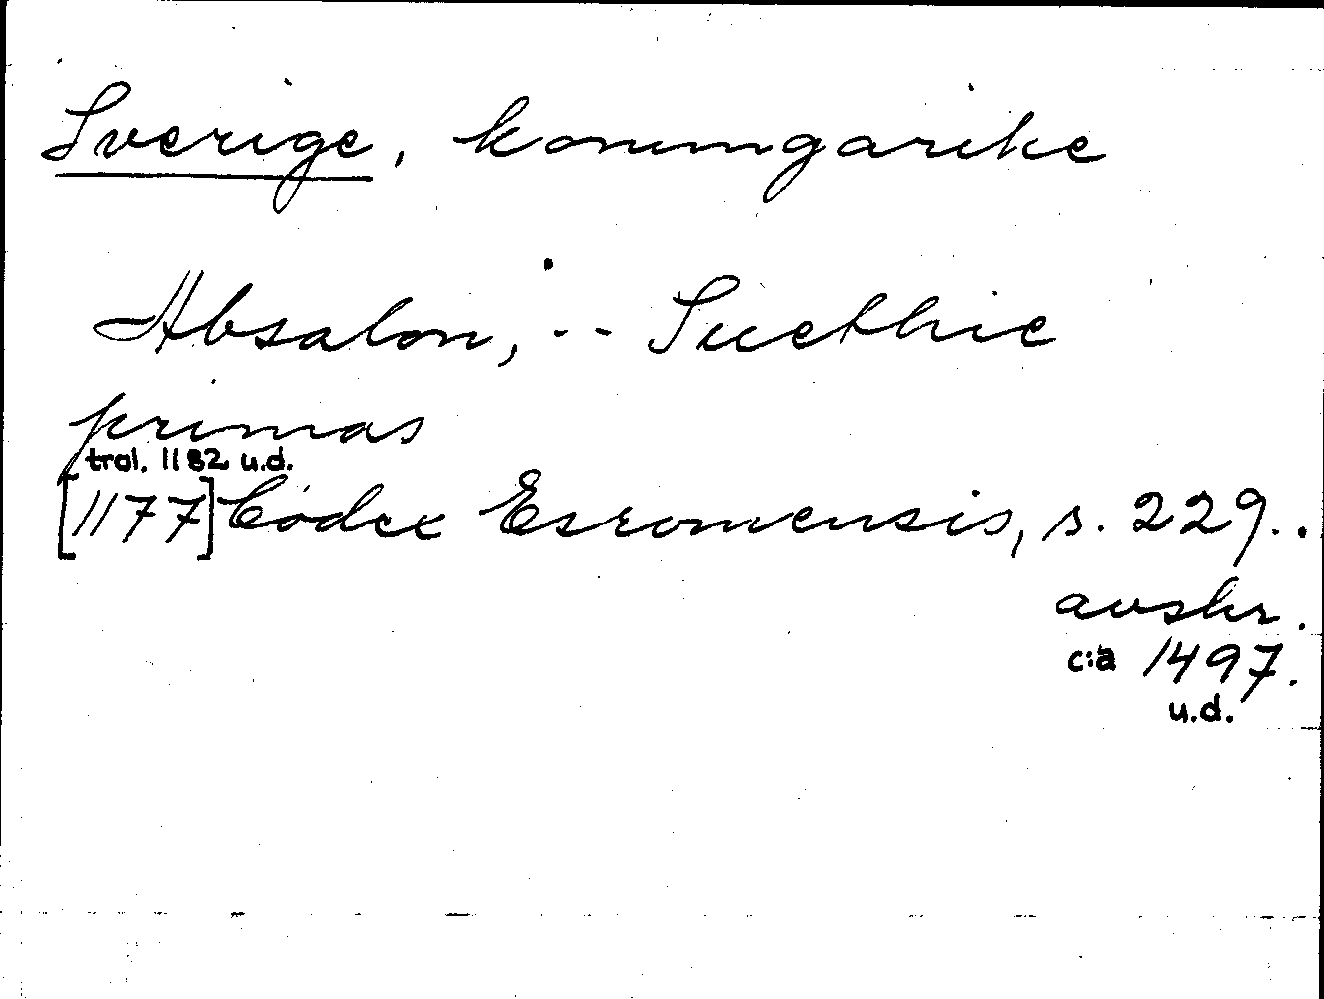 Sverige, konungarike
Absalon, -- Suethie
primas
trol. 1182 u.d.
[1177] Codex Esromensis, s. 229..
avskr.
c:a 1497.
u.d.